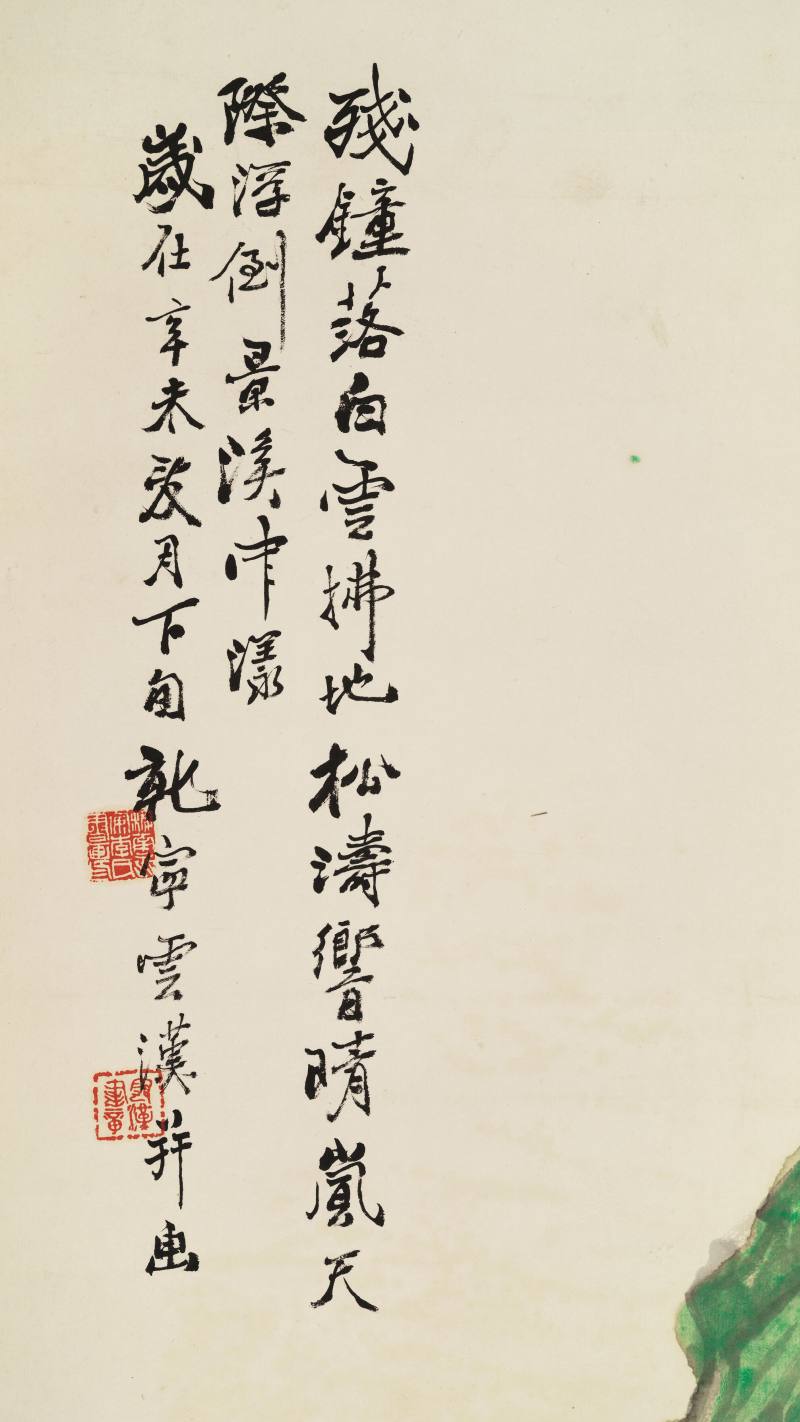 殘鐘落白雲拂地松濤響晴嵐天
際浮倒景溪中漾
歲在辛未 月下旬乾寧雲漢并画